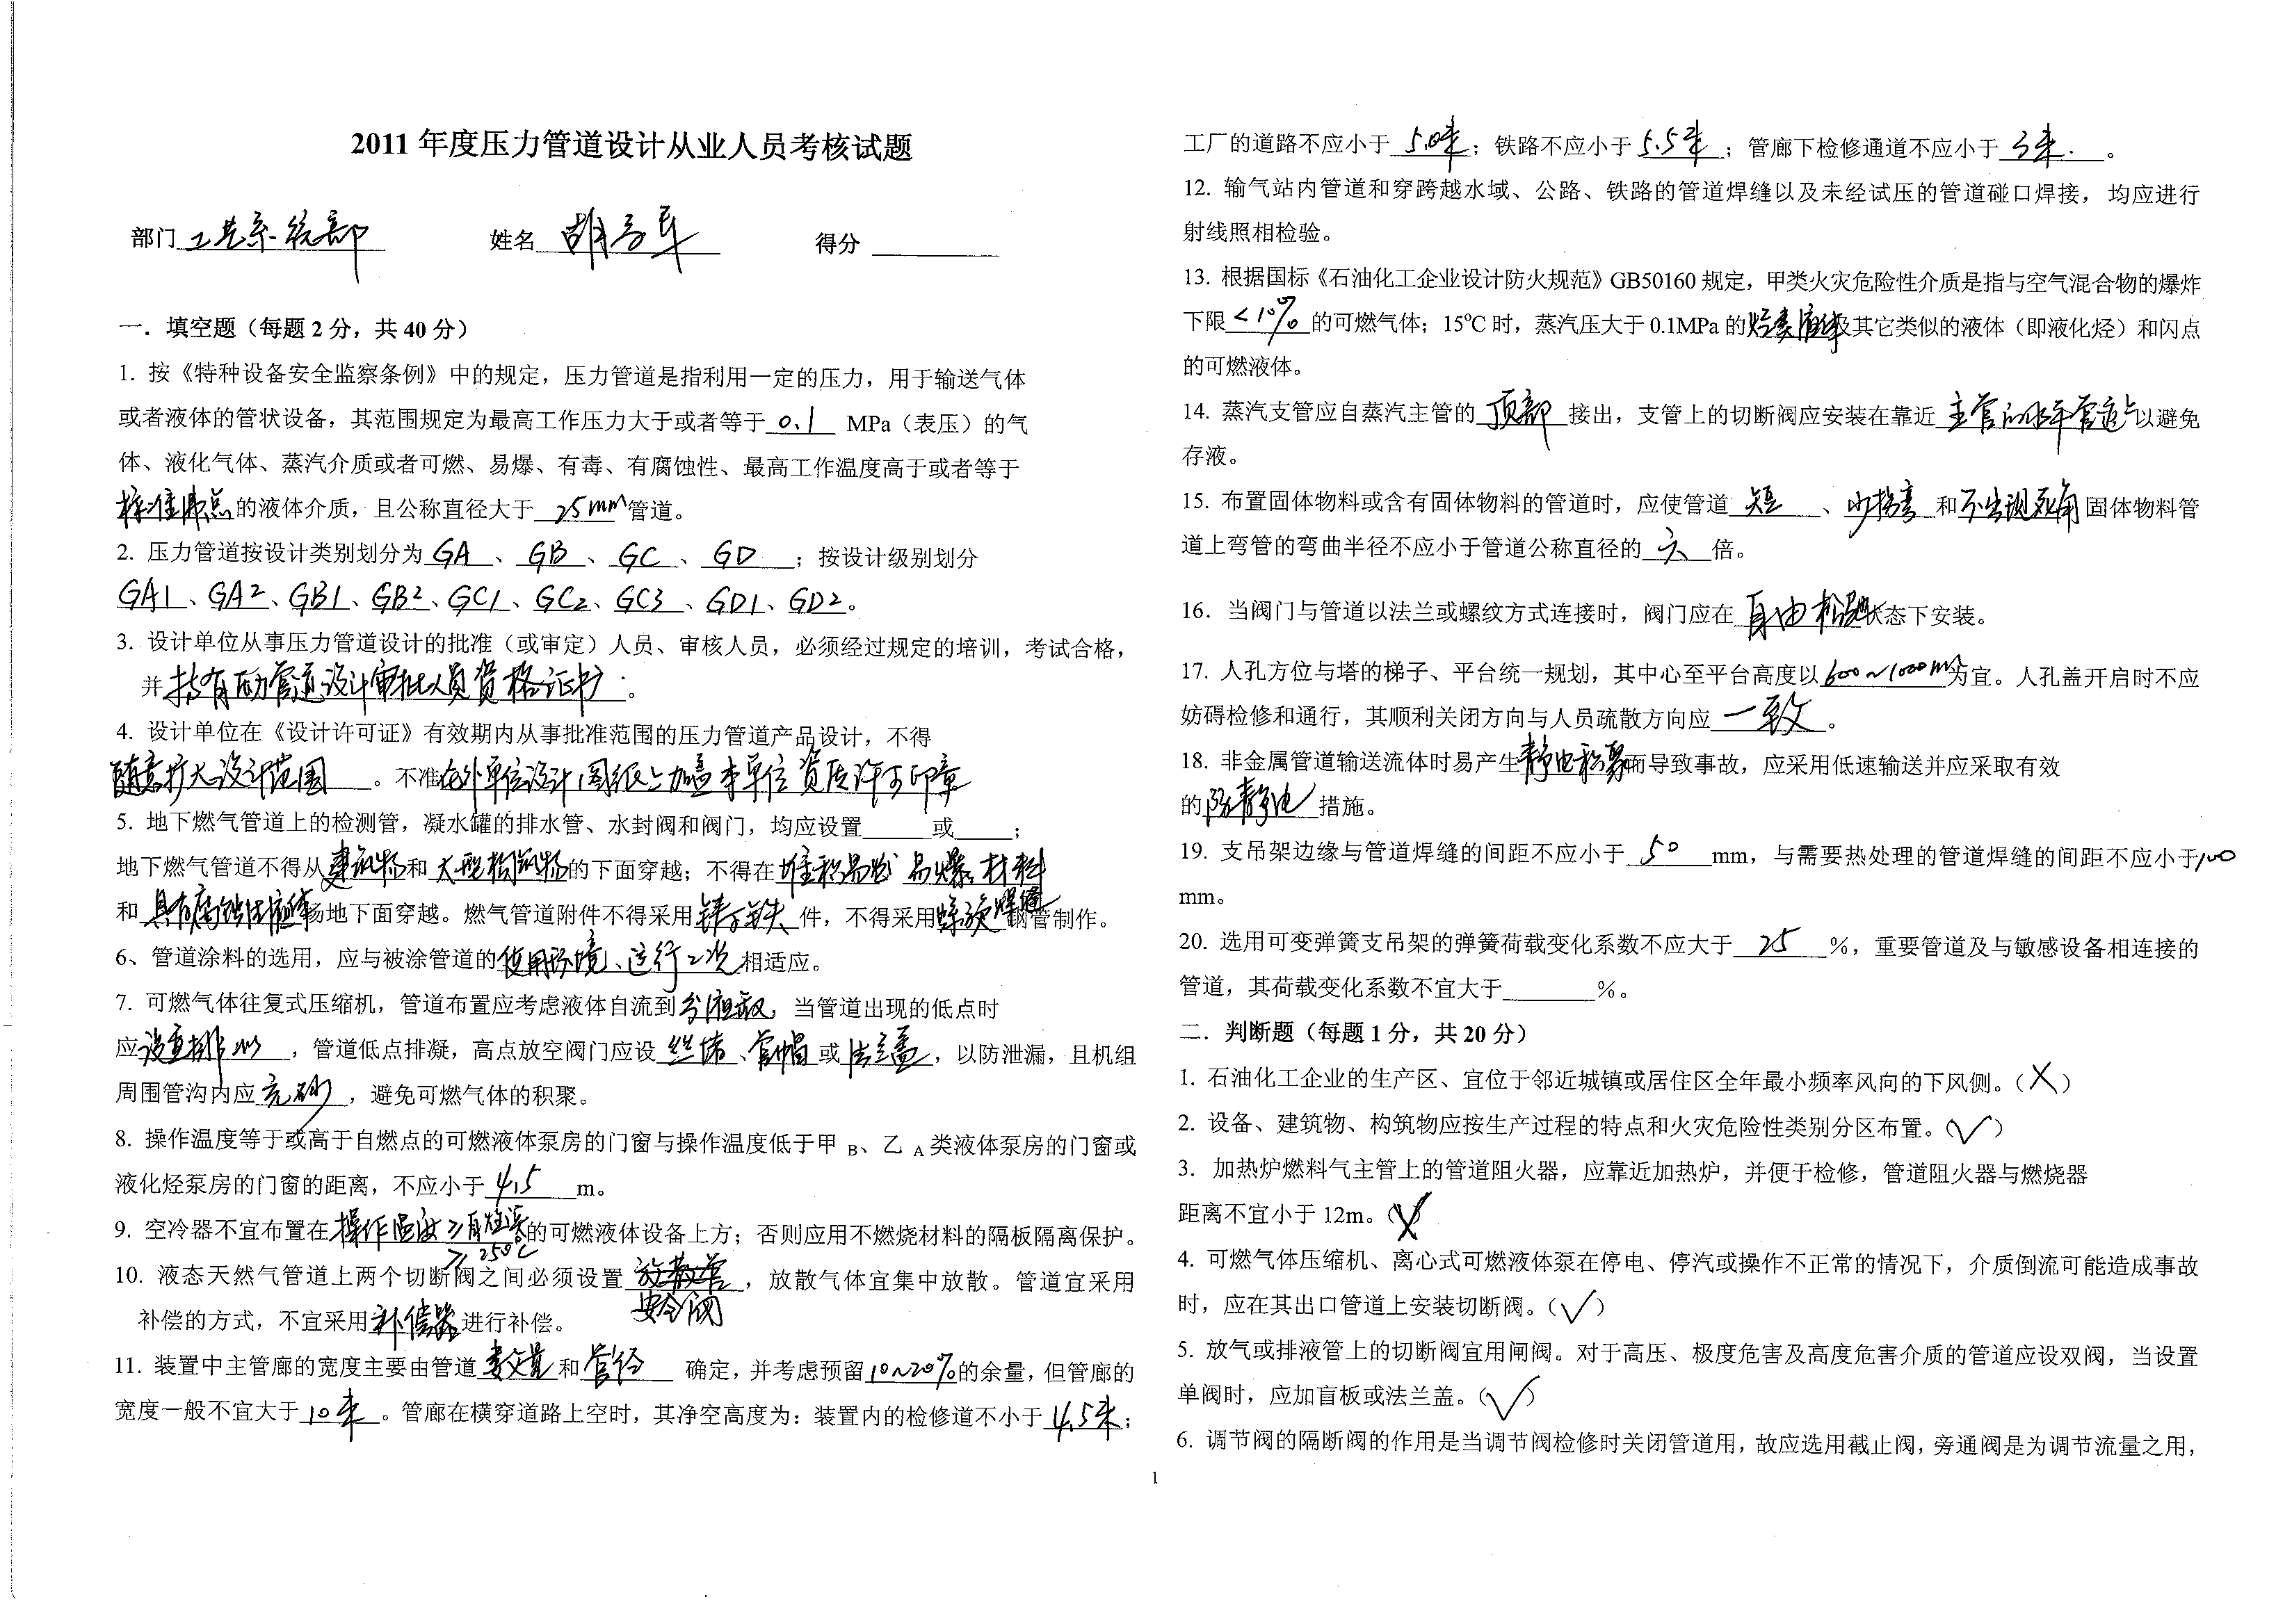 2011 年度压力管道设计从业人员考核试题
部门 工艺系统部 姓名 胡 得分
一．填空题（每题 2 分，共 40 分）
1. 按《特种设备安全监察条例》中的规定，压力管道是指利用一定的压力，用于输送气体
或者液体的管状设备，其范围规定为最高工作压力大于或者等于 0.1 MPa（表压）的气
体、液化气体、蒸汽介质或者可燃、易爆、有毒、有腐蚀性、最高工作温度高于或者等于
标准沸点的液体介质，且公称直径大于 25mm 管道。
2. 压力管道按设计类别划分为 GA 、 GB 、 GC 、 GD ；按设计级别划分
GA1、GA2、GB1、GB2、GC1、GC2、GC3、GD1、GD2。
3. 设计单位从事压力管道设计的批准（或审定）人员、审核人员，必须经过规定的培训，考试合格，
并 持有压力管道设计审批人员资格证书 。
4. 设计单位在《设计许可证》有效期内从事批准范围的压力管道产品设计，不得
随意扩大设计范围 。不准在外单位设计图纸上加盖本单位资质许可印章
5. 地下燃气管道上的检测管，凝水罐的排水管、水封阀和阀门，均应设置 或 ；
地下燃气管道不得从建筑物和大型构筑物的下面穿越；不得在堆积易燃 易爆材料
和 具有腐蚀性液体场地下面穿越。燃气管道附件不得采用铸铁件，不得采用螺旋焊缝钢管制作。
6、管道涂料的选用，应与被涂管道的使用环境、运行工况相适应。
7. 可燃气体往复式压缩机，管道布置应考虑液体自流到分液罐，当管道出现的低点时
应设置排 ，管道低点排凝，高点放空阀门应设 丝堵、管帽或法兰盖，以防泄漏，且机组
周围管沟内应充砂，避免可燃气体的积聚。
8. 操作温度等于或高于自燃点的可燃液体泵房的门窗与操作温度低于甲 B、乙 A 类液体泵房的门窗或
液化烃泵房的门窗的距离，不应小于 4.5 m。
9. 空冷器不宜布置在操作温度≥自燃点的可燃液体设备上方；否则应用不燃烧材料的隔板隔离保护。
≥250℃
10. 液态天然气管道上两个切断阀之间必须设置 放散管 ，放散气体宜集中放散。管道宜采用
安全阀
补偿的方式，不宜采用补偿器进行补偿。
11. 装置中主管廊的宽度主要由管道数量和管径 确定，并考虑预留10~20%的余量，但管廊的
宽度一般不宜大于 10米 。管廊在横穿道路上空时，其净空高度为：装置内的检修道不小于 4.5米；
工厂的道路不应小于 5.0米；铁路不应小于 5.5米；管廊下检修通道不应小于 3米. 。
12. 输气站内管道和穿跨越水域、公路、铁路的管道焊缝以及未经试压的管道碰口焊接，均应进行
射线照相检验。
13. 根据国标《石油化工企业设计防火规范》GB50160 规定，甲类火灾危险性介质是指与空气混合物的爆炸
下限<10%的可燃气体；15℃时，蒸汽压大于 0.1MPa 的烃类液体及其它类似的液体（即液化烃）和闪点
的可燃液体。
14. 蒸汽支管应自蒸汽主管的 顶部 接出，支管上的切断阀应安装在靠近 主管的水平管道上以避免
存液。
15. 布置固体物料或含有固体物料的管道时，应使管道 短 、少拐弯 和不出现死角固体物料管
道上弯管的弯曲半径不应小于管道公称直径的 六 倍。
16．当阀门与管道以法兰或螺纹方式连接时，阀门应在 自由松弛状态下安装。
17. 人孔方位与塔的梯子、平台统一规划，其中心至平台高度以600~1000mm为宜。人孔盖开启时不应
妨碍检修和通行，其顺利关闭方向与人员疏散方向应 一致 。
18. 非金属管道输送流体时易产生静电积聚而导致事故，应采用低速输送并应采取有效
的防静电措施。
19. 支吊架边缘与管道焊缝的间距不应小于 50 mm，与需要热处理的管道焊缝的间距不应小于100
mm。
20. 选用可变弹簧支吊架的弹簧荷载变化系数不应大于 25 %，重要管道及与敏感设备相连接的
管道，其荷载变化系数不宜大于 %。
二．判断题（每题 1 分，共 20 分）
1. 石油化工企业的生产区、宜位于邻近城镇或居住区全年最小频率风向的下风侧。（X）
2. 设备、建筑物、构筑物应按生产过程的特点和火灾危险性类别分区布置。（√）
3. 加热炉燃料气主管上的管道阻火器，应靠近加热炉，并便于检修，管道阻火器与燃烧器
距离不宜小于 12m。（X）
4. 可燃气体压缩机、离心式可燃液体泵在停电、停汽或操作不正常的情况下，介质倒流可能造成事故
时，应在其出口管道上安装切断阀。（√）
5. 放气或排液管上的切断阀宜用闸阀。对于高压、极度危害及高度危害介质的管道应设双阀，当设置
单阀时，应加盲板或法兰盖。（√）
6. 调节阀的隔断阀的作用是当调节阀检修时关闭管道用，故应选用截止阀，旁通阀是为调节流量之用，
1